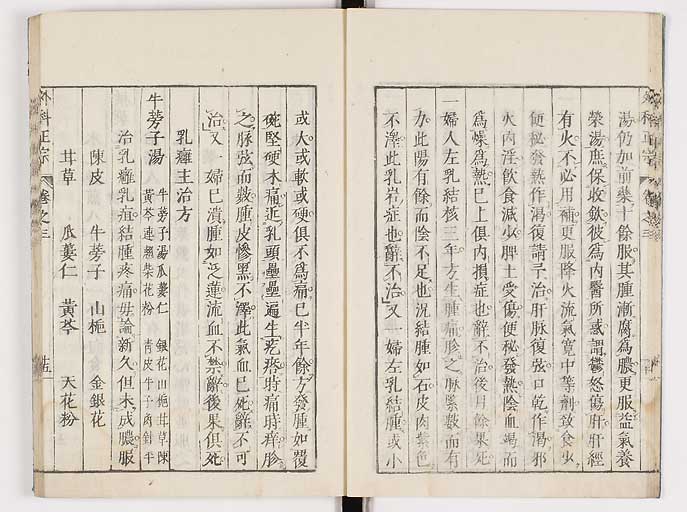 湯仍加前藥十餘服其腫漸腐為膿更服益氣養
榮湯庶保收斂彼為内醫所惑謂鬱怒傷肝肝經
有火不必用補更服降火流氣寬中等劑致食少
便秘發熱作渴復請予治肝脉復弦口乾作渴邪
火内淫飲食減少脾土受傷便秘發熱陰血竭而
為燥為熱已上俱内損症也辭不治後月餘果死
一婦人左乳結核三年方生腫痛胗之脉緊數而有
力此陽有餘而陰不足也況結腫如石皮肉紫色
不澤此乳岩症也辭不治又一婦左乳結腫或小
或大或軟或硬俱不為痛已半年餘方發腫如覆
碗堅硬木痛近乳頭壘壘遍生疙瘩時痛時痒胗
之脉弦而數腫皮慘黑不澤此氣血已死辭不可
治又一婦已潰腫如泛蓮流血不禁辭後果俱死
乳癰主治方
牛蒡子湯
牛蒡子湯瓜蔞仁 銀花山梔茸草陳
黃芩連翹柴花粉 青皮牛子肉針平
治乳癰乳疽結腫疼痛毋論新久但未成膿服
陳皮 牛蒡子 山梔 金銀花
茸草 瓜蔞仁 黃芩 天花粉
外科正宗 卷之三
外科正宗 卷之三